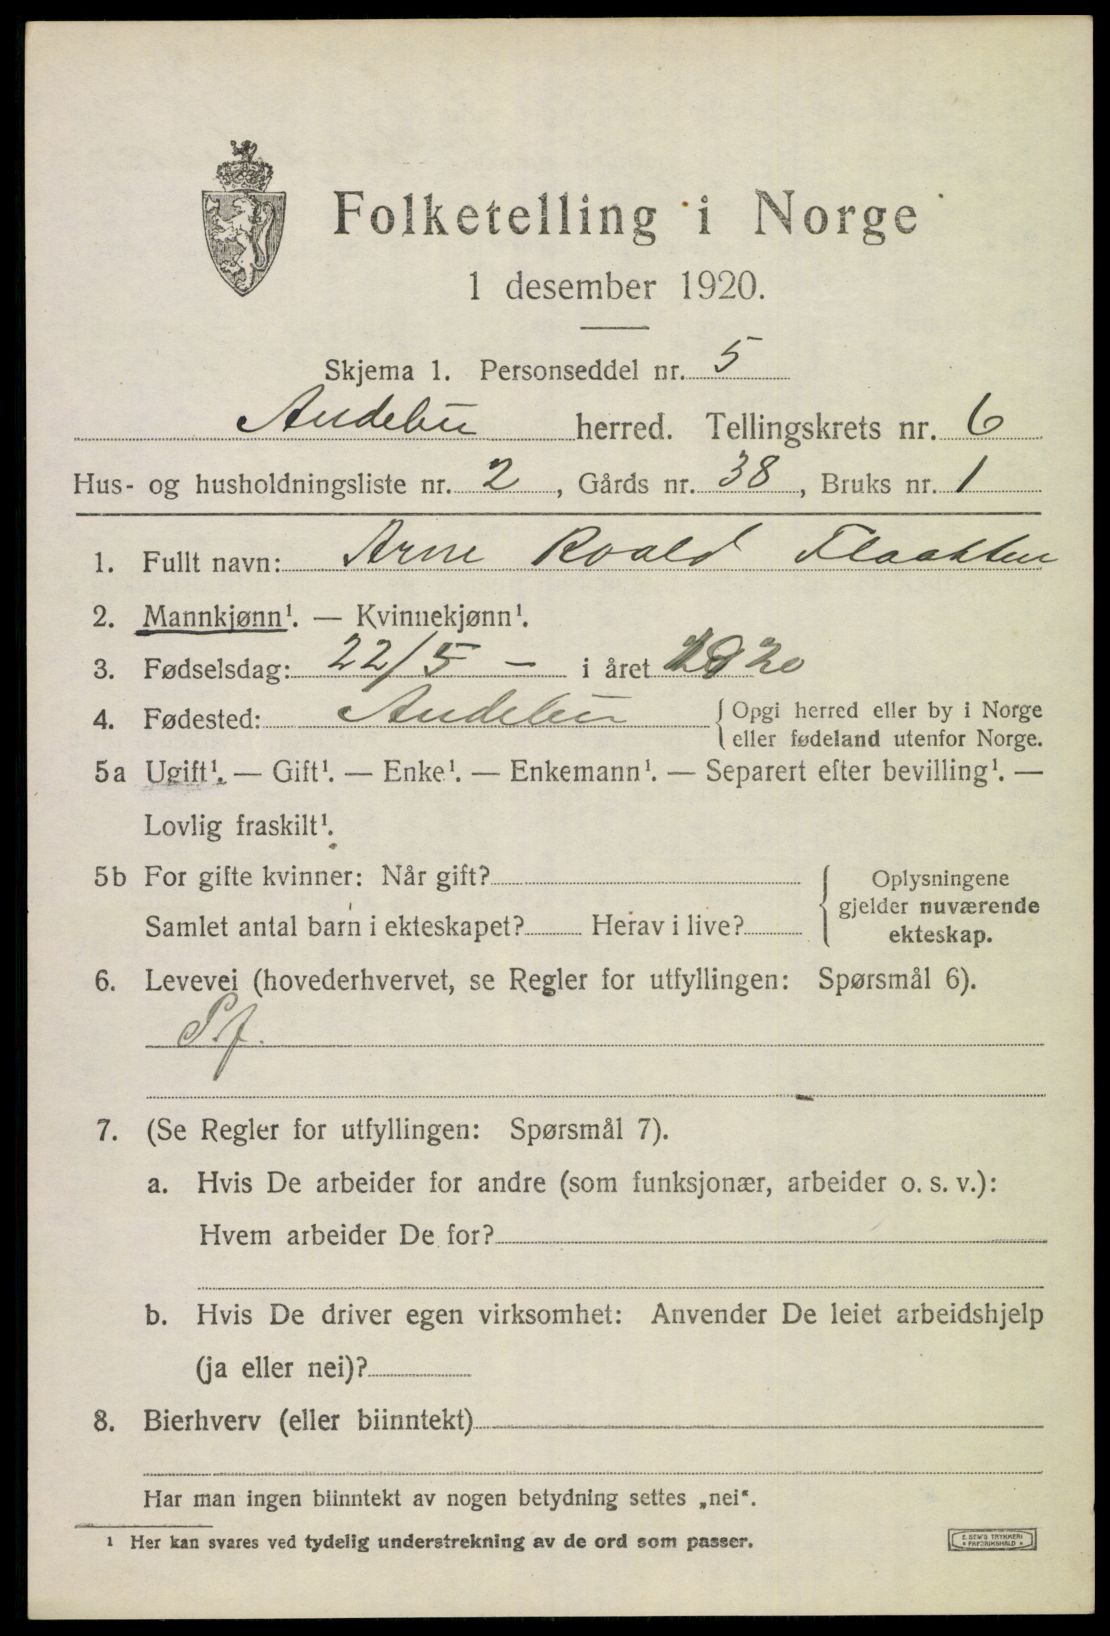 Folketelling i Norge
1 desember 1920.
Skjema 1. Personseddel nr. 5
Andebu herred. Tellingskrets nr. 6
Hus- og husholdningsliste nr. 2, Gårds nr. 38, Bruks nr. 1
1. Fullt navn: Arne Roald Flaatten
2. Mannkjønn¹. — Kvinnekjønn¹.
3. Fødselsdag: 22/5 – i året 1920
4. Fødested: Andebu { Opgi herred eller by i Norge
eller fødeland utenfor Norge.
5a Ugift¹. — Gift¹. — Enke¹. — Enkemann¹. — Separert efter bevilling¹. —
Lovlig fraskilt¹.
5b For gifte kvinner: Når gift?
Samlet antal barn i ekteskapet? Herav i live?
{ Oplysningene
gjelder nuværende
ekteskap.
6. Levevei (hovederhvervet, se Regler for utfyllingen: Spørsmål 6).
S. f.
7. (Se Regler for utfyllingen: Spørsmål 7).
a. Hvis De arbeider for andre (som funksjonær, arbeider o. s. v.):
Hvem arbeider De for?
b. Hvis De driver egen virksomhet: Anvender De leiet arbeidshjelp
(ja eller nei)?
8. Bierhverv (eller biinntekt)
Har man ingen biinntekt av nogen betydning settes „nei“.
¹ Her kan svares ved tydelig understrekning av de ord som passer.
E. SEM'S TRYKKERI
FREDRIKSHALD